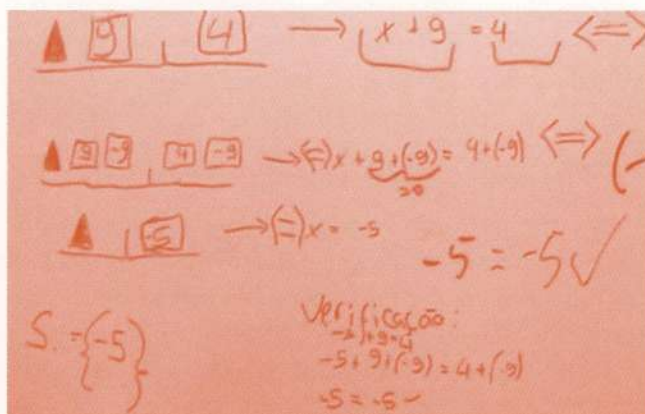 9 4 → x + 9 = 4 <=>
9 -9 4 -9 → (=) x + 9 + (-9) = 4 + (-9) <=> (-
=0
-5 → (=) x = -5
-5 = -5 ✓
S = {-5}
Verificação:
-5 + 9 = 4
-5 + 9 + (-9) = 4 + (-9)
-5 = -5